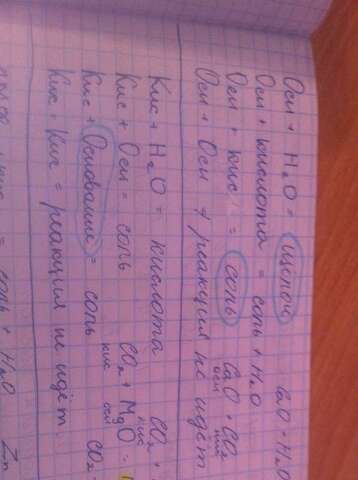 Осн + H₂O = щёлочь CaO + H₂O
Осн + кислота = соль + H₂O
Осн + кис = соль CaO + CO₂
осн кис
Осн + Осн ≠ реакция не идёт
Кис + H₂O = кислота CO₂ +
кис
Кис + Осн = соль CO₂ + MgO =
кис осн
Кис + Основание = соль CO₂
Кис + Кис = реакция не идёт
= соль + H₂O Zn